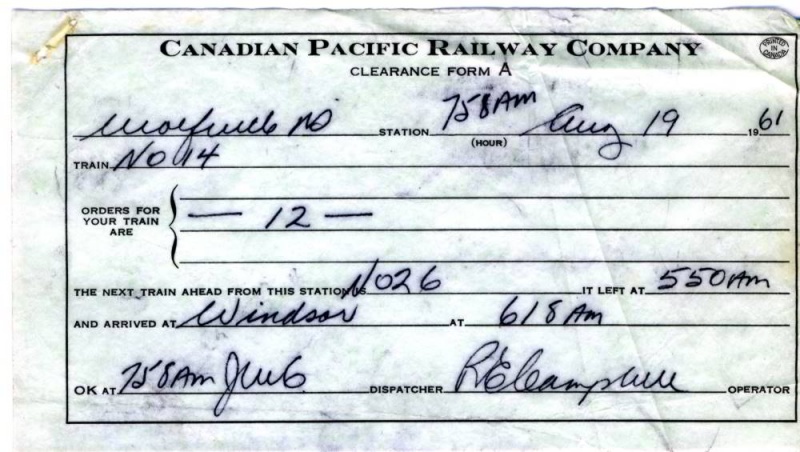 CANADIAN PACIFIC RAILWAY COMPANY
PRINTED IN CANADA
CLEARANCE FORM A
STATION 758AM (HOUR) Aug 19 1961
TRAIN No 14
ORDERS FOR YOUR TRAIN ARE — 12 —
THE NEXT TRAIN AHEAD FROM THIS STATION IS No 26 IT LEFT AT 550AM
AND ARRIVED AT Windsor AT 618AM
OK AT 758AM DISPATCHER RE Campbell OPERATOR